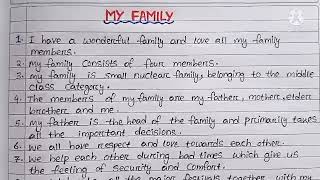 MY FAMILY
1. I have a wonderful family and love all my family
members.
2. my family consists of four members.
3. my family is small nuclear family, belonging to the middle
class category.
4. The members of my family are my father, mother, elder
brother and me.
5. My father is the head of the family and primarily takes
all the important decisions.
6. we all have respect and love towards each other.
7. we help each other during bad times which give us
the feeling of security and comfort.
all the major festivals together with my